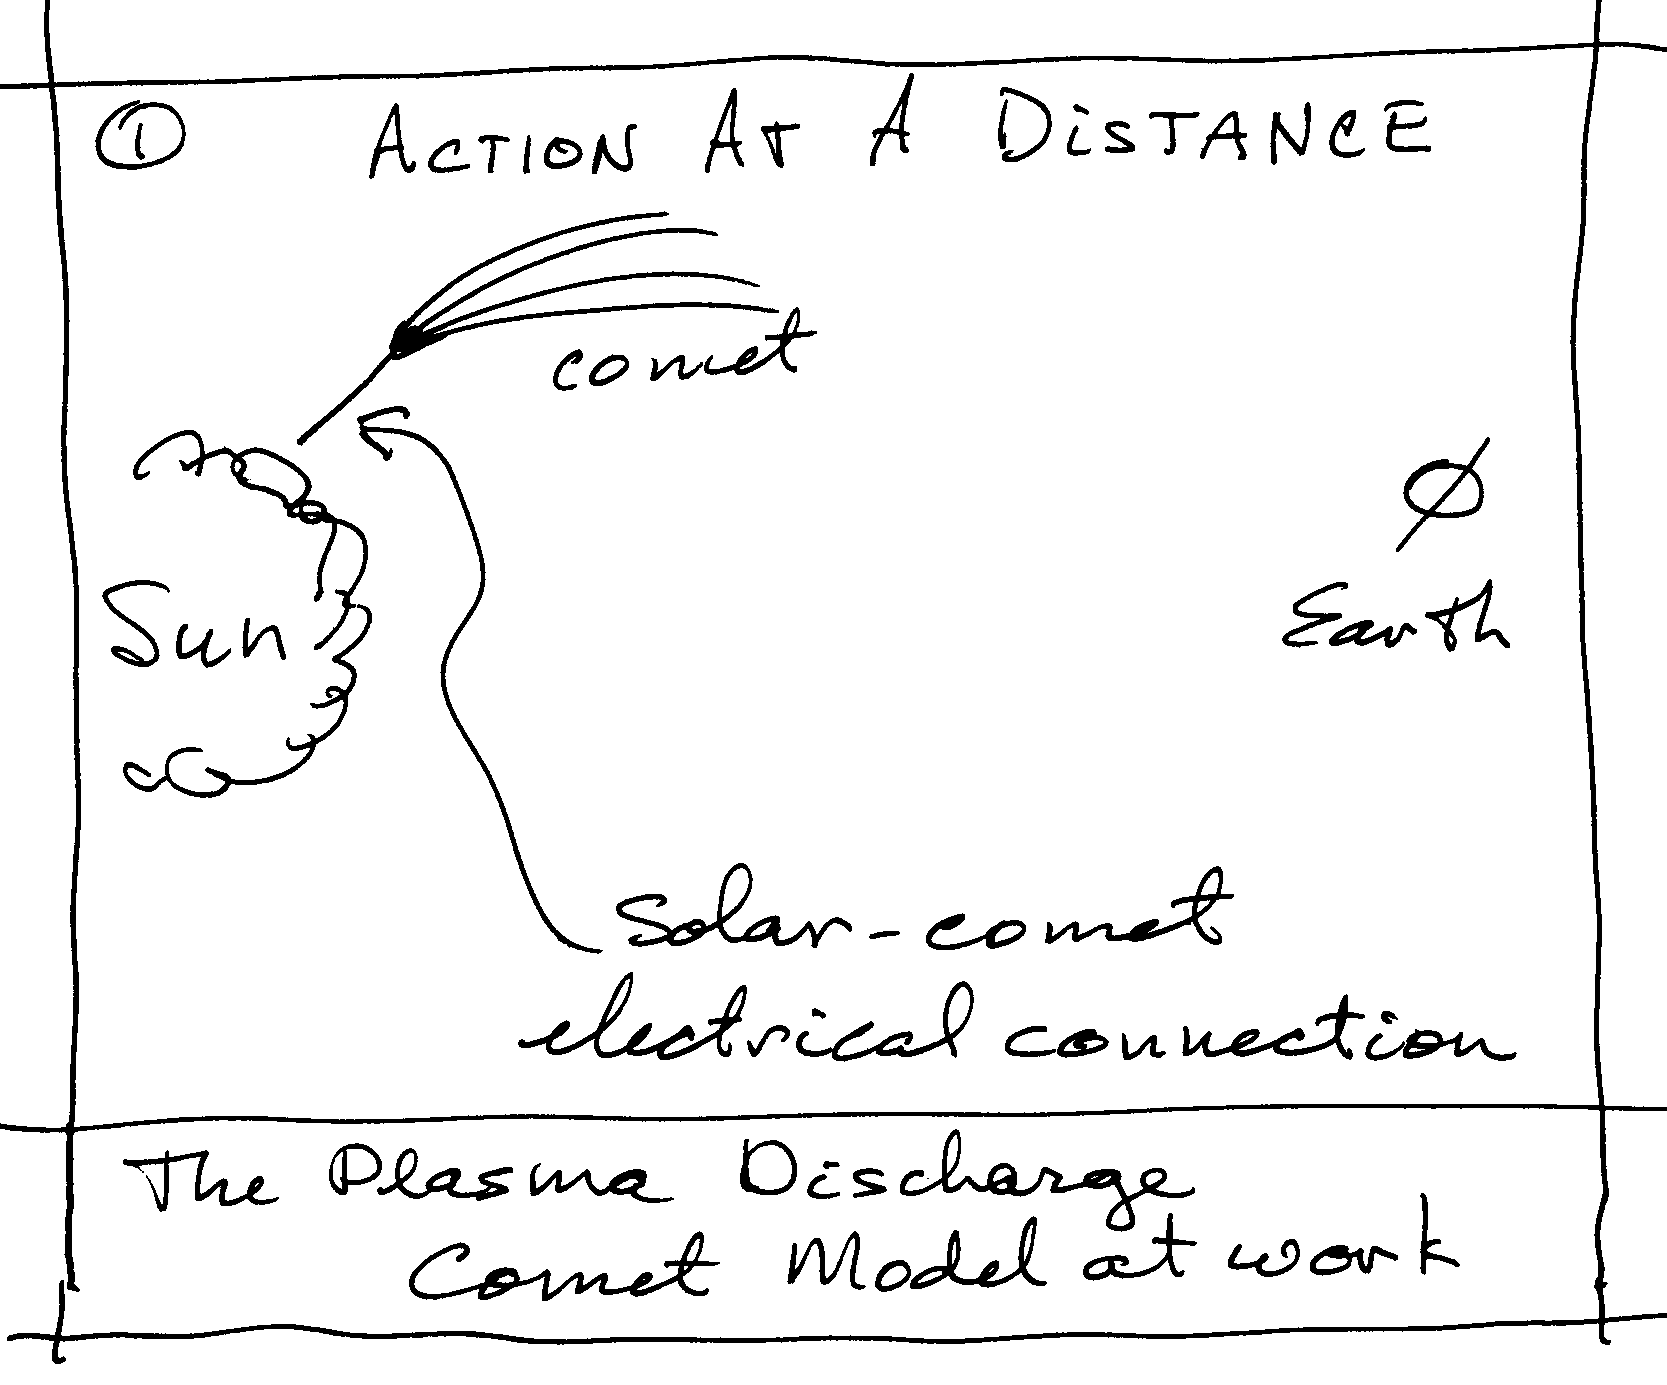 ① ACTION AT A DISTANCE
comet
Sun
Earth
Solar-comet
electrical connection
The Plasma Discharge
Comet Model at work